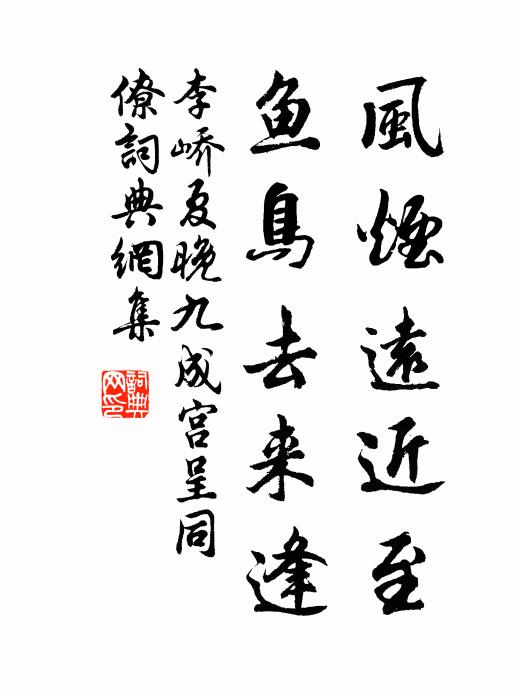 風煙遠近至
鱼鳥去来逢
李嶠夏晚九成宮呈同
僚詞典網集
詞典
网印